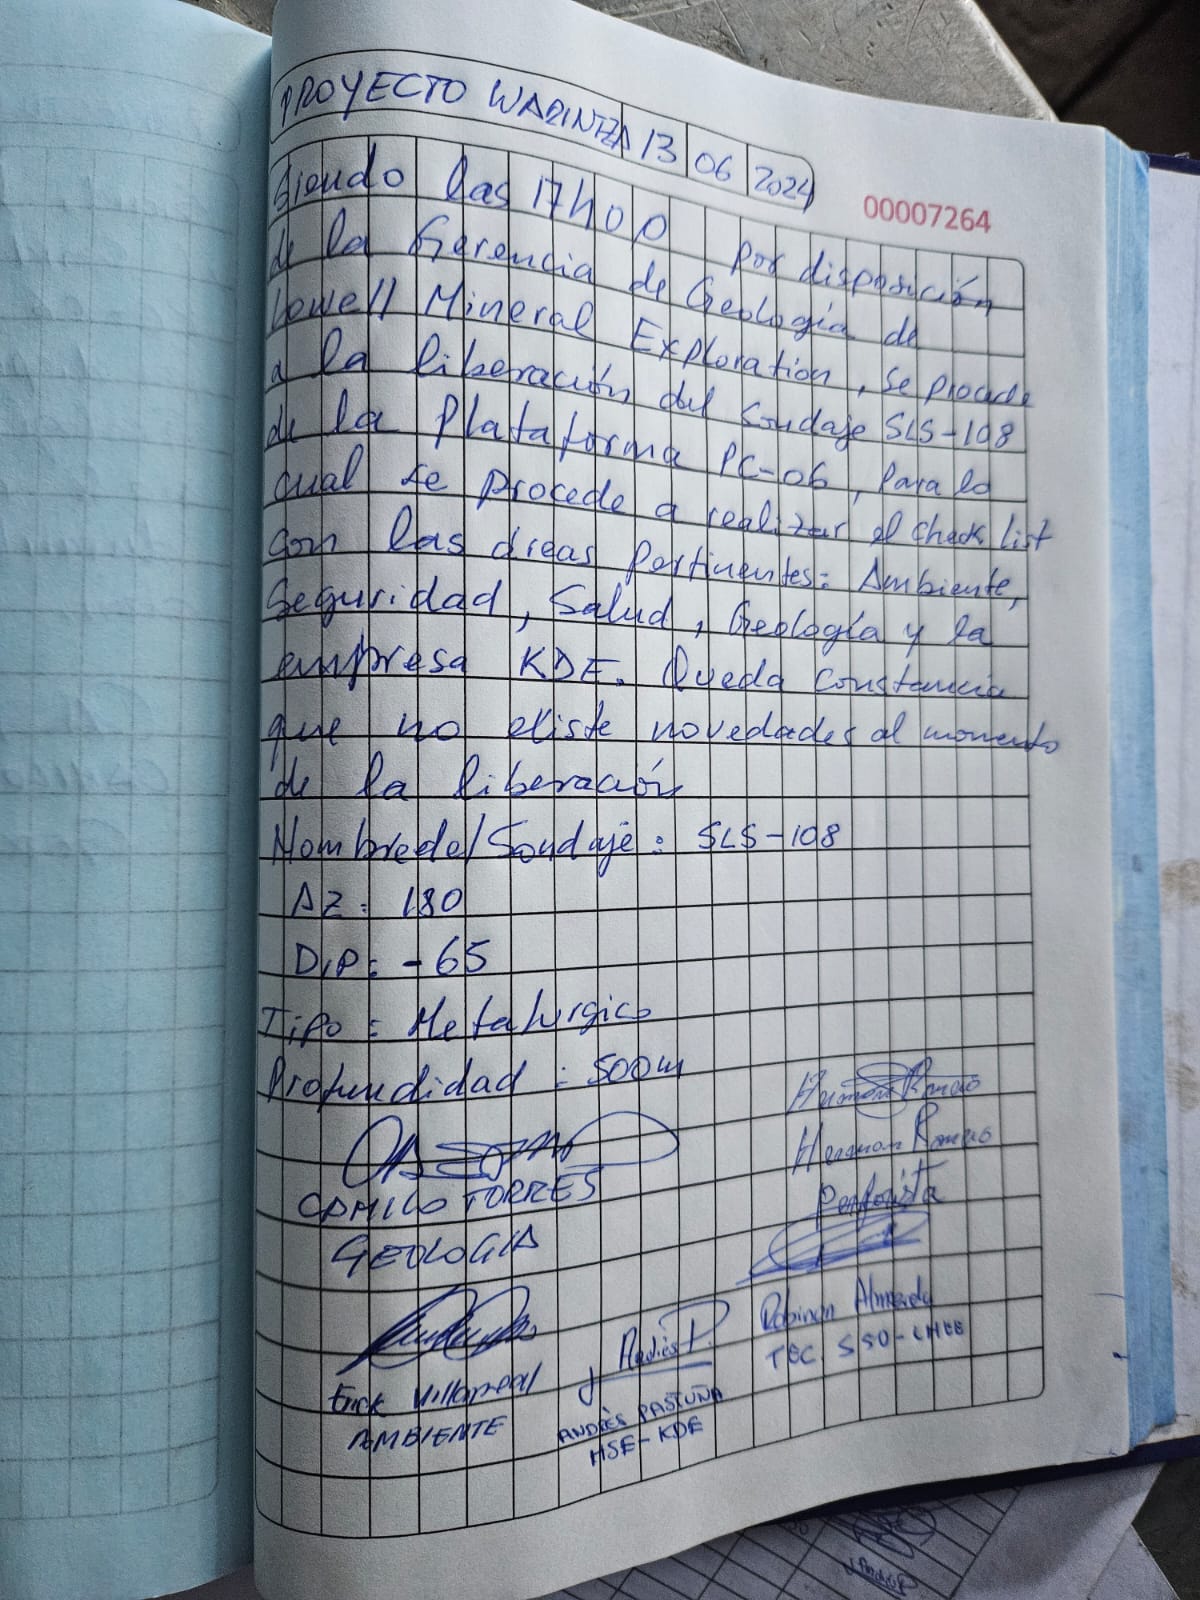 PROYECTO WARINTZA 13 06 2024
00007264
Siendo las 17h00 por disposición
de la Gerencia de Geología de
Lowell Mineral Exploration, se procede
a la liberación del Sondaje SLS-108
de la Plataforma PC-06, para lo
cual se procede a realizar el Check List
con las áreas pertinentes: Ambiente,
Seguridad, Salud, Geología y la
empresa KDE. Queda constancia
que no existe novedades al momento
de la liberación
Nombre del Sondaje: SLS-108
AZ: 180
DIP: -65
Tipo = Metalurgico
Profundidad : 500m
CAMILO TORRES
GEOLOGIA
Hernan Romero
Perforista
Robinson Almeida
TEC. SSO-LMEE
Erick Villarreal
AMBIENTE
Andrés P.
ANDRÉS PASTUÑA
HSE-KDE